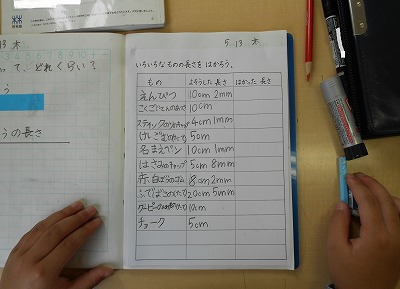 13 木
って、どれくらい?
う
うの長さ
5 13 木
いろいろなものの長さを はかろう。
もの よそうした長さ はかった長さ
えんぴつ 10cm 2mm
こくごじてんのあつさ 10cm
スティックのりのキャップ 4cm 1mm
けしごむのたて 5cm
名まえペン 10cm 1mm
はさみのキャップ 5cm 8mm
赤白ぼうのゴム 8cm 2mm
ふでばこのたて 20cm 5mm
10cm
チョーク 5cm